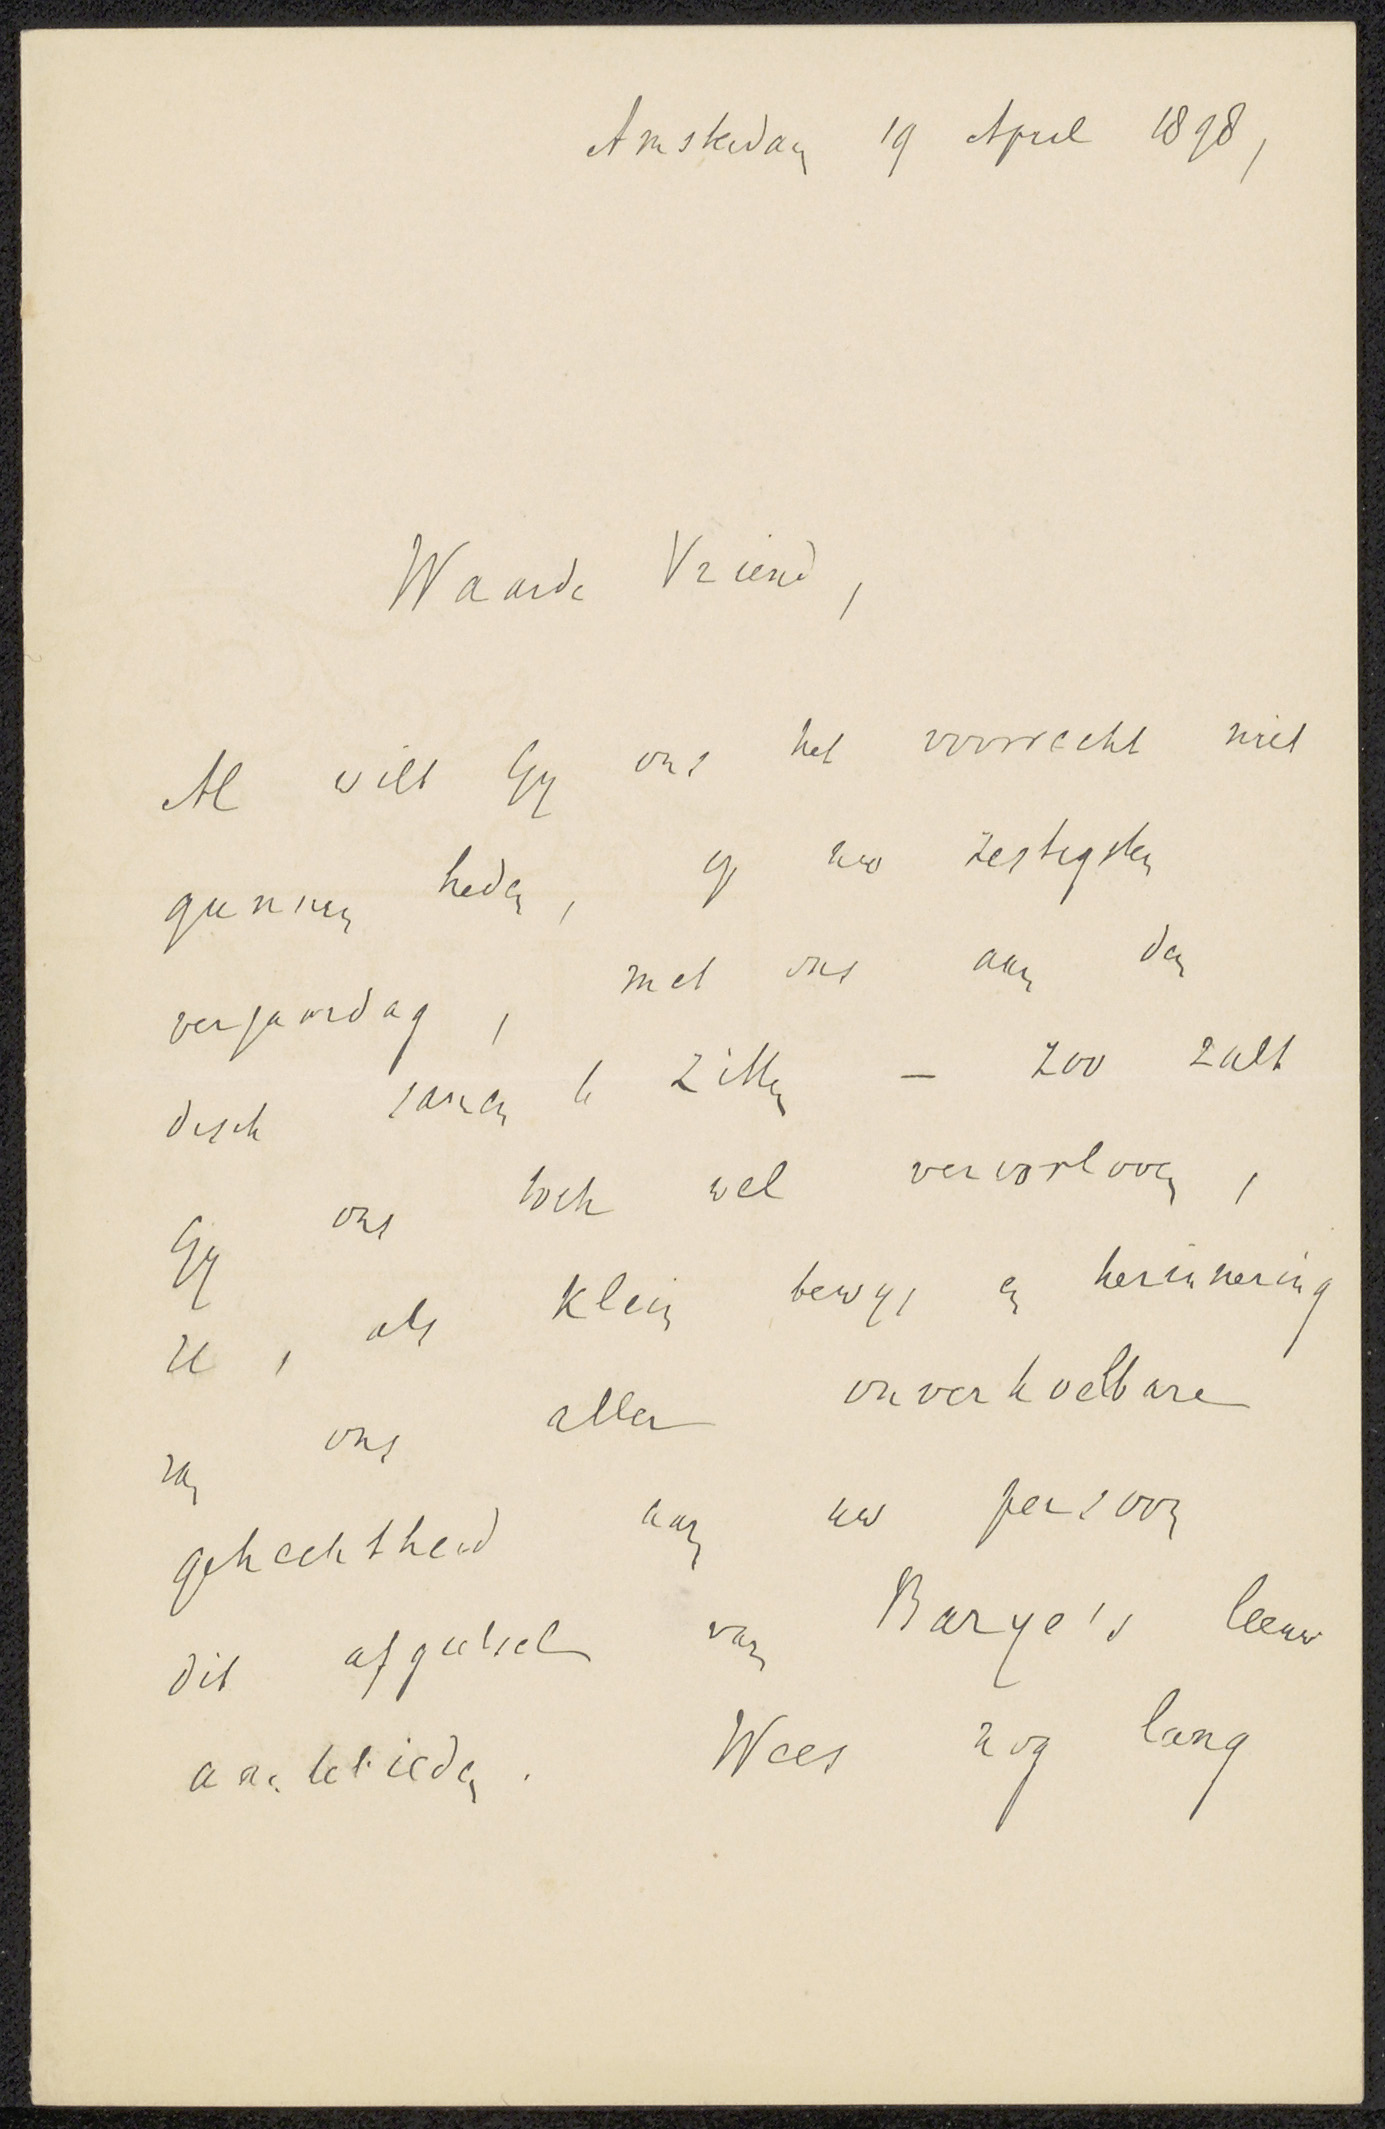 Amsterdam 19 April 1898,
Waarde Vriend,
Al wilt Gij ons het voorrecht niet
gunnen heden, op uw zestigsten
verjaardag, met ons aan den
disch samen te zitten — zoo zult
Gij ons toch wel veroorloven,
U, als klein bewijs en herinnering
van ons aller onverkoelbare
gehechtheid aan uw persoon
dit afgietsel van Barye's leeuw
aantebieden. Wees nog lang